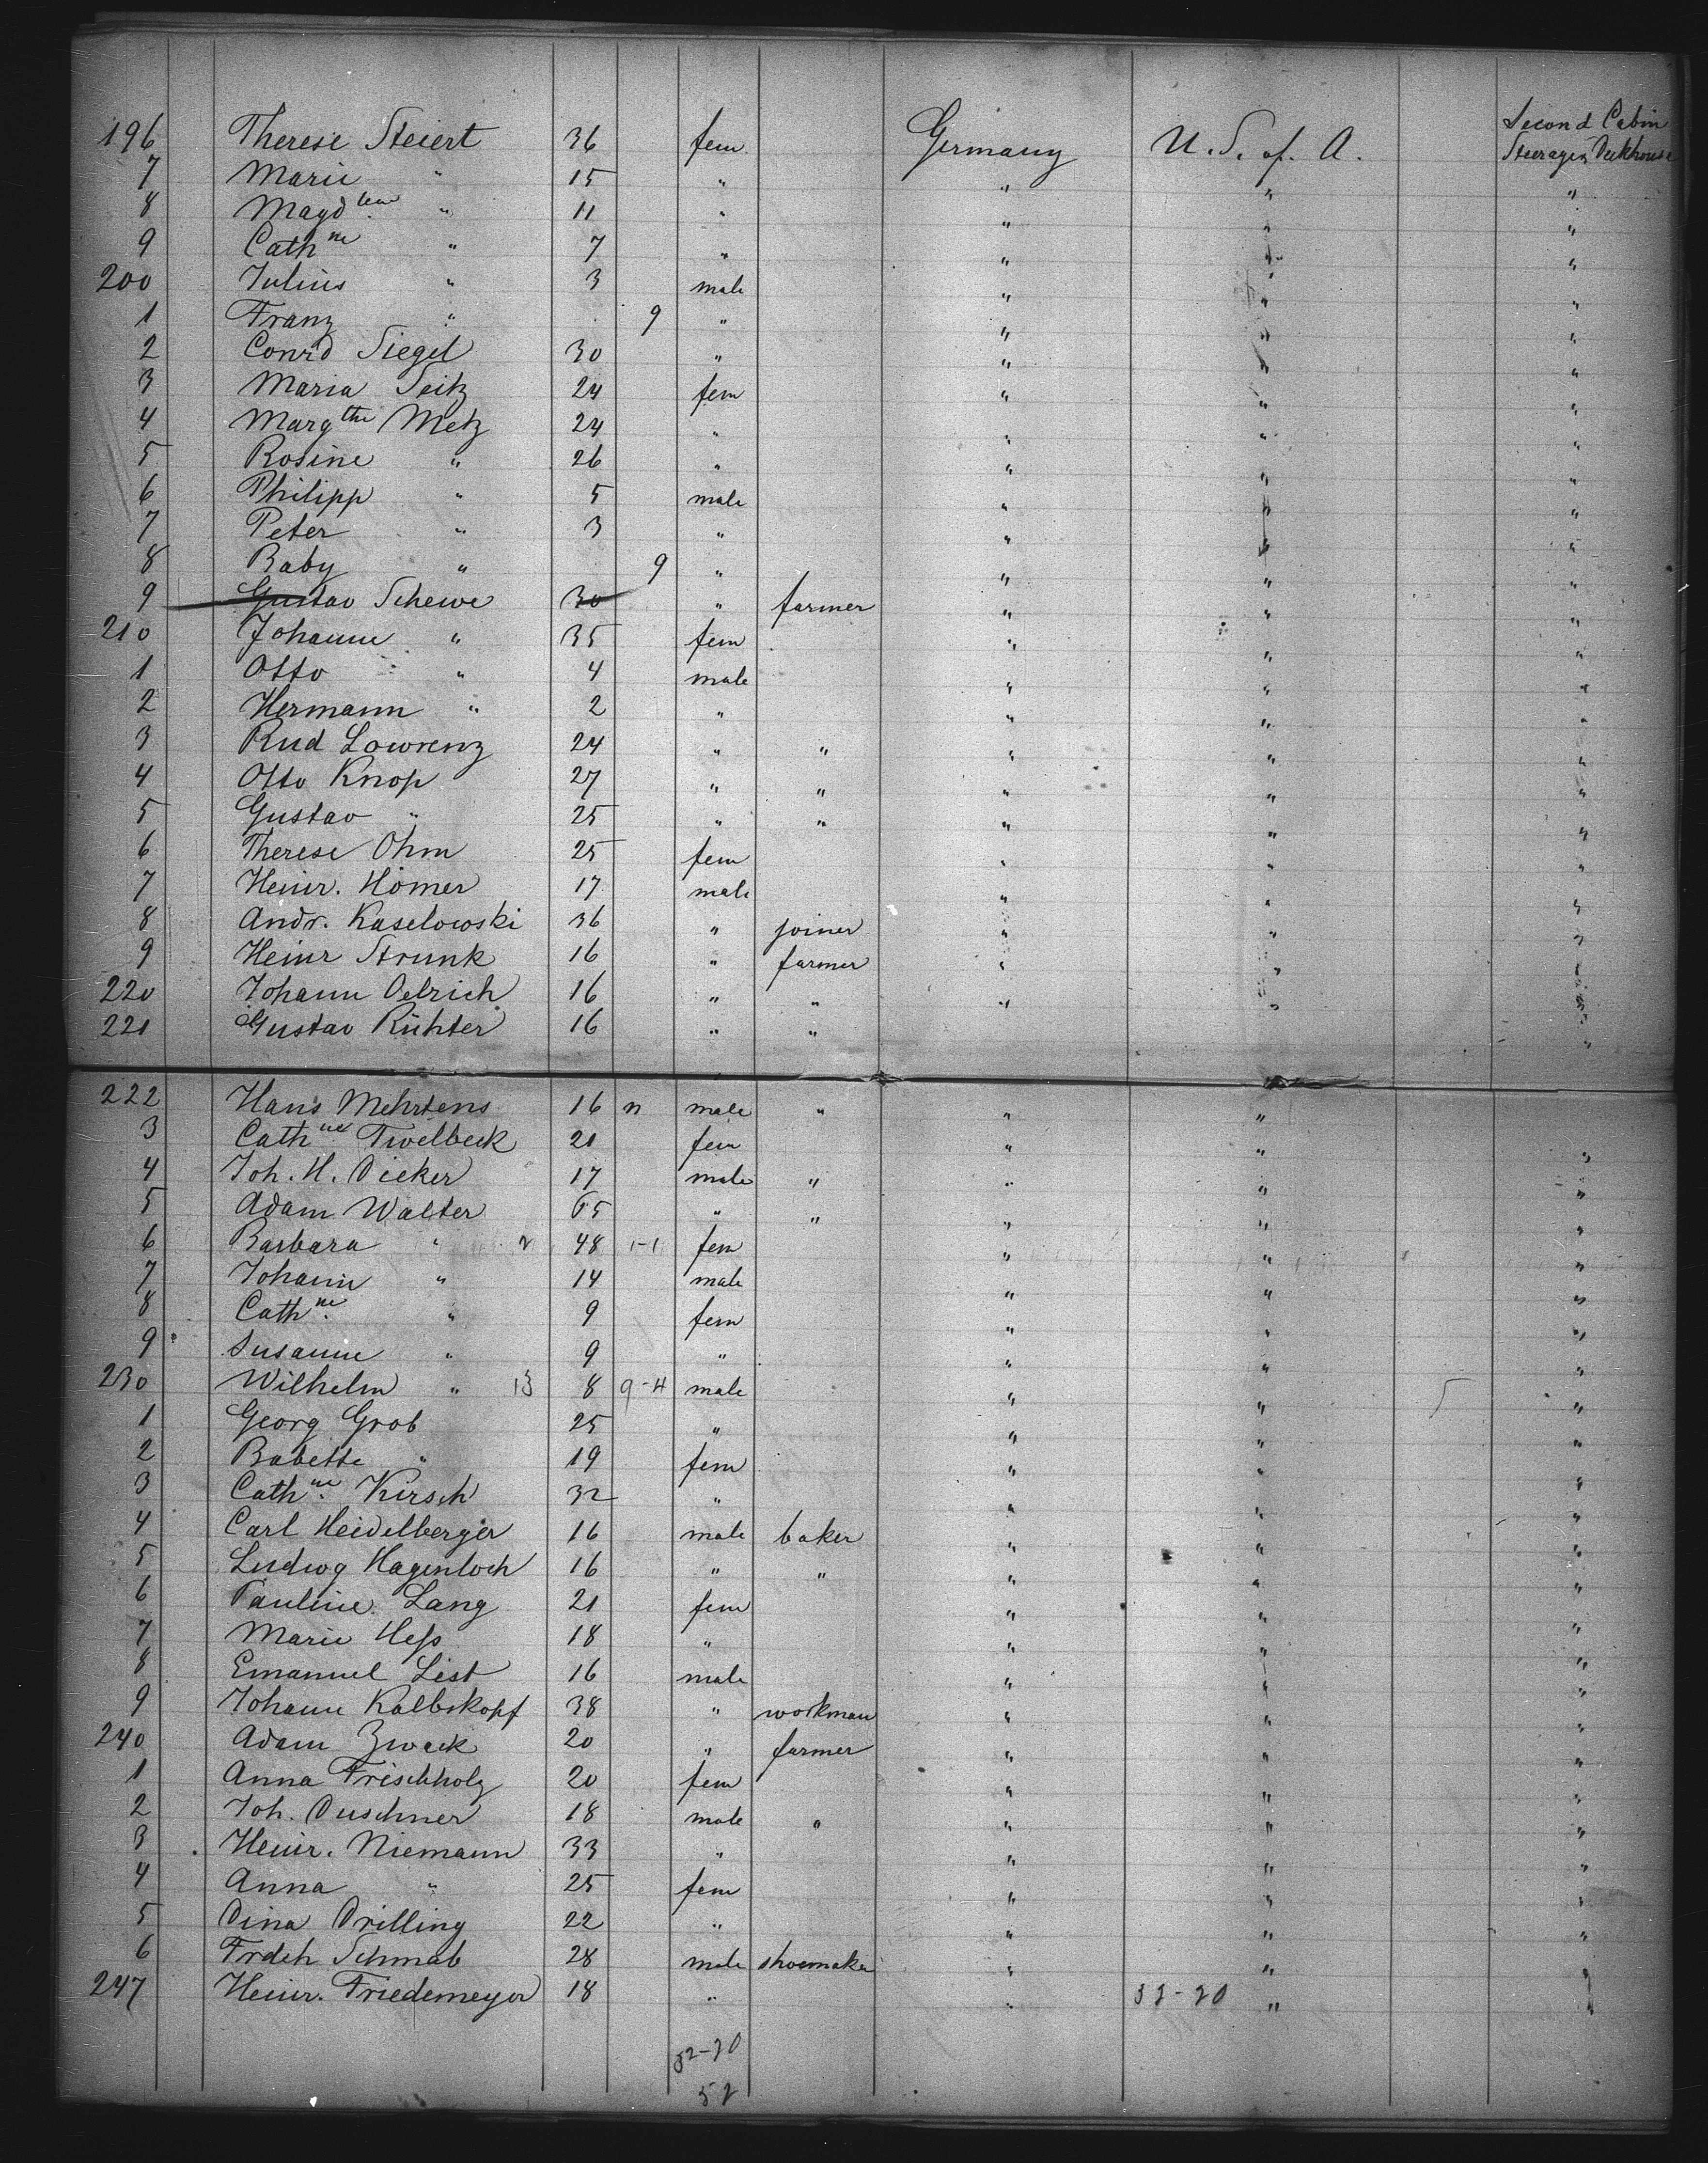 196 Therese Steiert 36 fem. Germany U. S. of A. Second Cabin Steerage, Deckhouse
7 Marie " 15 " " " "
8 Magd lene " 11 " " " "
9 Cath ne " 7 " " " "
200 Julius " 3 male " " "
1 Franz " 9 " " " "
2 Conrd Siegel 30 " " " "
3 Maria Seitz 24 fem " " "
4 Marg the Metz 24 " " " "
5 Rosine " 26 " " " "
6 Philipp " 5 male " " "
7 Peter " 3 " " " "
8 Baby " 9 " " " "
9 Gustav Schewe 30 " farmer " " "
210 Johanne " 35 fem " " "
1 Otto " 4 male " " "
2 Hermann " 2 " " " "
3 Rud Lowrenz 24 " " " " "
4 Otto Knop 27 " " " " "
5 Gustav " 25 " " " " "
6 Therese Ohm 25 fem " " "
7 Heinr. Hömer 17 male " " "
8 Andr. Kaselowski 36 " joiner " " "
9 Heinr Strunk 16 " farmer " " "
220 Johann Oelrich 16 " " " " "
221 Gustav Richter 16 " " "
222 Hans Mehrtens 16 n male " " "
3 Cath ne Twelbeck 21 fem " " "
4 Joh. H. Dieker 17 male " " " "
5 Adam Walter 65 " " " " "
6 Barbara " 48 1-1 fem " " "
7 Johann " 14 male " " "
8 Cath ne " 9 fem " " "
9 Susanne " 9 " " " "
230 Wilhelm " 13 8 9-4 male " " 5 "
1 Georg Grob 25 " " " "
2 Babette " 19 fem " " "
3 Cath ne Kirsch 32 " " " "
4 Carl Heidelberger 16 male baker " " "
5 Ludwg Hagenloch 16 " " " " "
6 Pauline Lang 21 fem " " "
7 Marie Heſs 18 " " " "
8 Emanuel List 16 male " " "
9 Johann Kalbskopf 38 " workman " " "
240 Adam Zwack 20 " farmer " " "
1 Anna Frischholz 20 fem " " "
2 Joh. Duschner 18 male " " " "
3 Heinr. Niemann 33 " " " "
4 Anna " 25 fem " " "
5 Dina Drilling 22 " " " "
6 Frdch Schmab 28 male shoemaker " " "
247 Heinr. Friedemeyer 18 " " 32-20 "
32-20
52